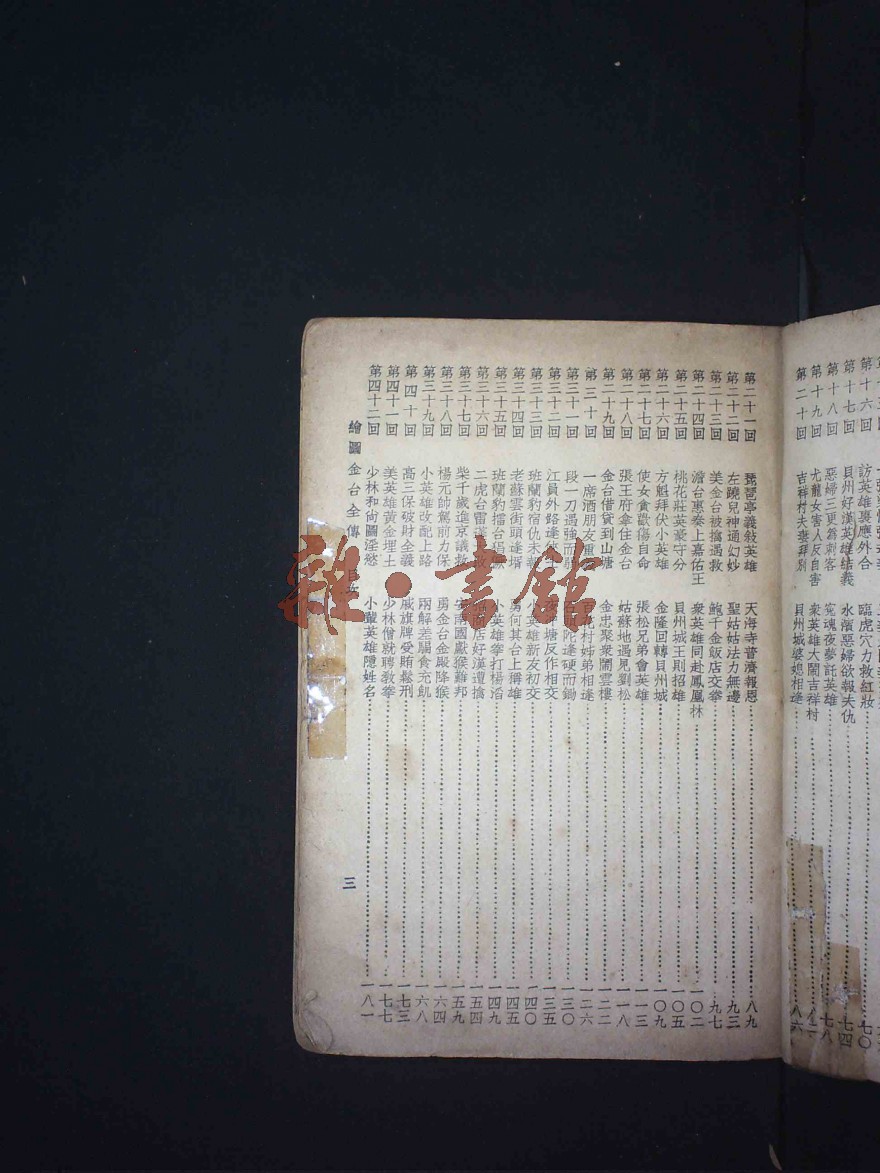 第十六回　訪英雄裏應外合　臨虎穴力救紅妝　七〇
第十七回　貝州好漢英雄結義　水濱惡婦欲報夫仇　七四
第十八回　惡婦三更為刺客　冤魂夜夢託英雄　七八
第十九回　尤龍女害人反自害　衆英雄大鬧吉祥村
第二十回　吉祥村夫妻拜別　貝州城婆媳相逢　八六
第二十一回　琵琶亭義敍英雄　天海寺普濟報恩　八九
第二十二回　左蹺兒神通幻妙　聖姑姑法力無邊　九三
第二十三回　美金台被擒遇救　鮑千金飯店交拳　九七
第二十四回　澹台惠奏上嘉佑王　衆英雄同赴鳳凰林　一〇二
第二十五回　桃花莊英豪守分　貝州城王則招雄　一〇五
第二十六回　方魁拜伏小英雄　金隆回轉貝州城　一〇九
第二十七回　使女貪歡傷自命　張松兄弟會英雄　一一三
第二十八回　張王府拿住金台　姑蘇地遇見劉松　一一八
第二十九回　金台借貸到山塘　金忠聚衆鬧雲樓　一二二
第三十回　一席酒朋友重　村姊弟相逢　一二六
第三十一回　段一刀遇強而　陀逢硬而鋤　一三〇
第三十二回　江員外路逢　塘反作相交　一三五
第三十三回　班蘭豹宿仇未　小英雄新友初交　一四〇
第三十四回　老蘇雲街頭逢壻　勇何其台上搠雄　一四五
第三十五回　班蘭豹擂台　小英雄拳打楊滔　一四九
第三十六回　二虎台雷　店好漢遭擒　一五四
第三十七回　柴千歲進京議救　安南國獻猴難邦　一五九
第三十八回　楊元帥駕前力保　勇金台金殿降猴　一六四
第三十九回　小英雄改配上路　兩解差騙食充飢　一六八
第四十回　高三保破財全義　戚旗牌受賄鬆刑　一七三
第四十一回　美英雄黃金埋土　少林僧就聘教拳　一七七
第四十二回　少林和尙圖淫慾　小輩英雄隱姓名　一八一
繪圖金台全傳　目次　三
雜·書館